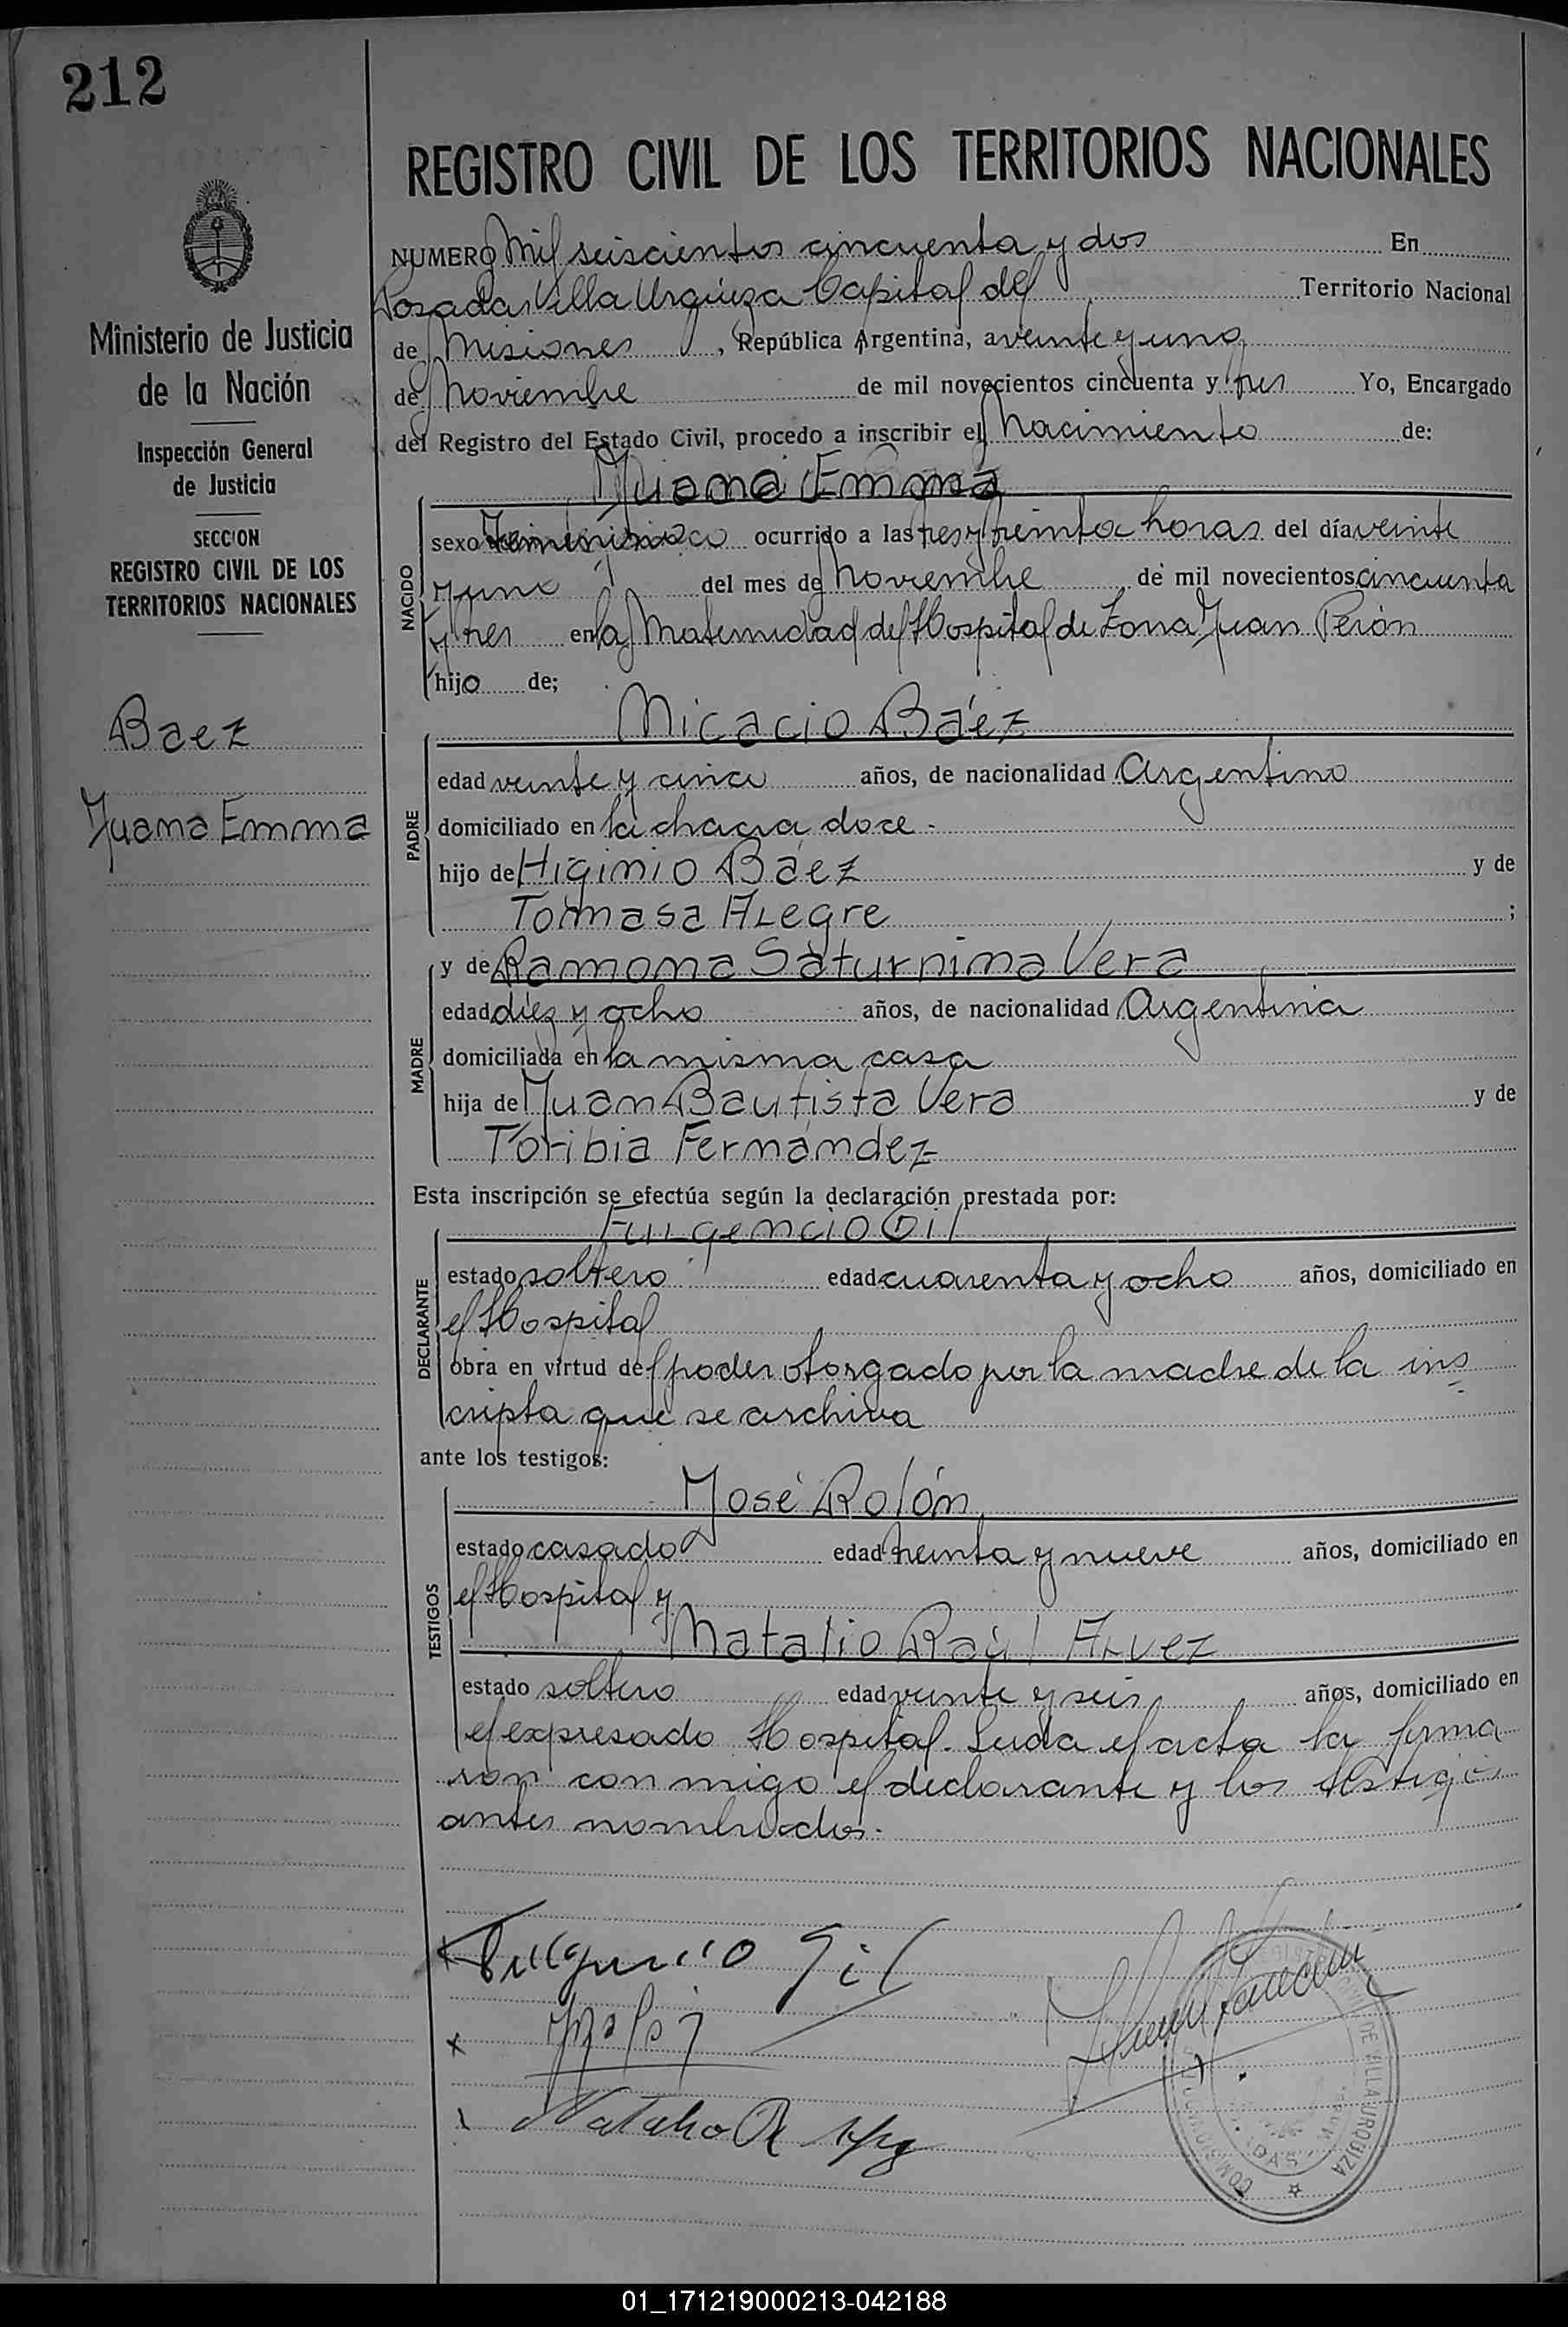 212
REGISTRO CIVIL DE LOS TERRITORIOS NACIONALES
Ministerio de Justicia
de la Nación
Inspección General
de Justicia
SECCION
REGISTRO CIVIL DE LOS
TERRITORIOS NACIONALES
Baez
Juana Emma
NUMERO Mil seiscientos cincuenta y dos En
Posadas Villa Urquiza Capital del Territorio Nacional
de Misiones, República Argentina, a veinte y uno
de Noviembre de mil novecientos cincuenta y tres Yo, Encargado
del Registro del Estado Civil, procedo a inscribir el Nacimiento de:
Juana Emma
NACIDO
sexo Femenino ocurrido a las tres y treinta horas del día veinte
y uno del mes de Noviembre de mil novecientos cincuenta
y tres en la Maternidad del Hospital de Zona Juan Perón
hijo de;
Micacio Báez
PADRE
edad veinte y cinco años, de nacionalidad Argentino
domiciliado en la chacra doce.
hijo de Higinio Báez y de
Tomasa Alegre ;
y de Ramona Saturnina Vera
MADRE
edad diez y ocho años, de nacionalidad Argentina
domiciliada en la misma casa
hija de Juan Bautista Vera y de
Toribia Fernández
Esta inscripción se efectúa según la declaración prestada por:
Fulgencio Gil
DECLARANTE
estado soltero edad cuarenta y ocho años, domiciliado en
el Hospital
obra en virtud del poder otorgado por la madre de la ins
cripta que se archiva
ante los testigos:
José Rolón
TESTIGOS
estado casado edad treinta y nueve años, domiciliado en
el Hospital y
Natalio Raúl Alvez
estado soltero edad veinte y seis años, domiciliado en
el expresado Hospital. Leida el acta la firma
ron con migo el declarante y los testigos
antes nombrados.
Fulgencio Gil
Natalio R
DE VILLA URQUIZA
01_171219000213-042188